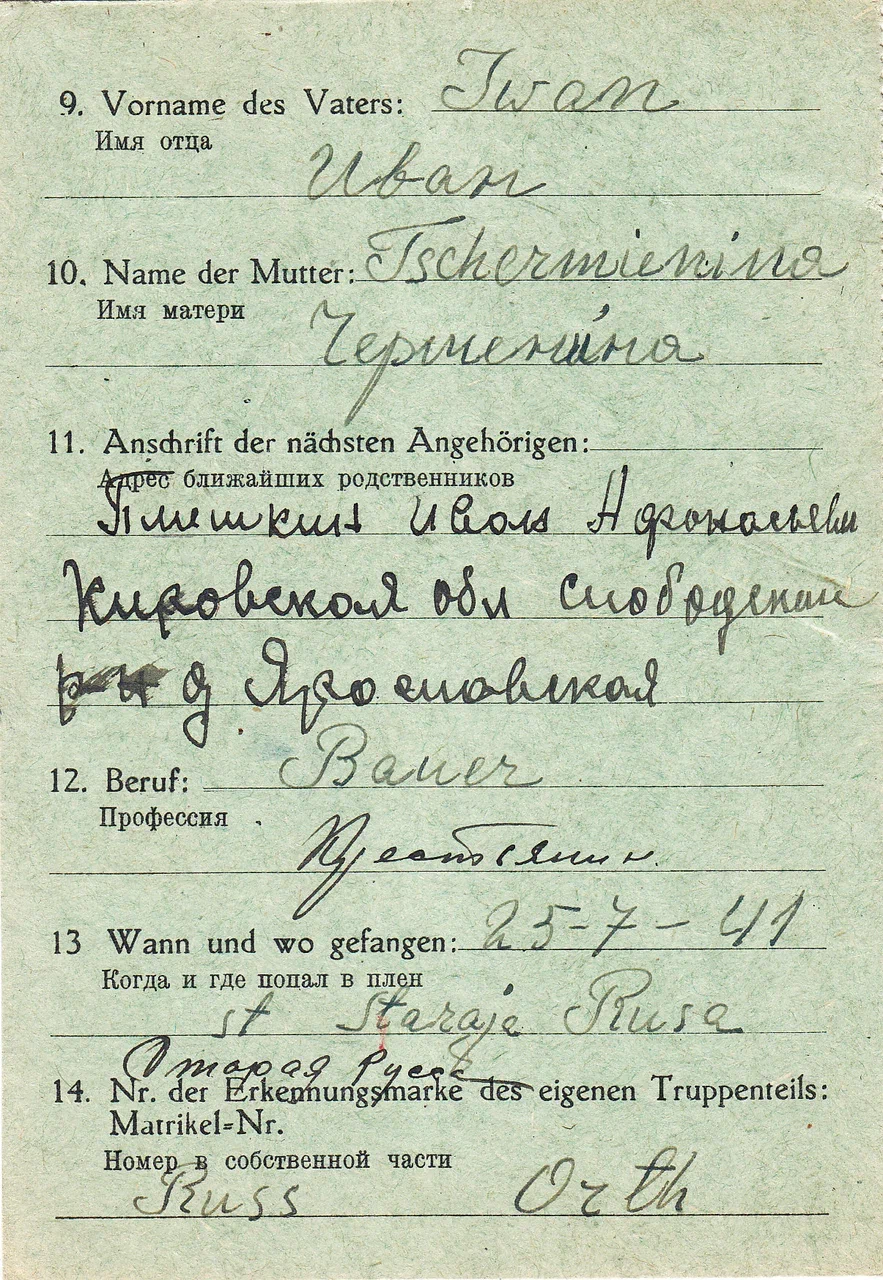 9. Vorname des Vaters: Iwan
Имя отца
Иван
10. Name der Mutter: Tschermienina
Имя матери
Черменина
11. Anschrift der nächsten Angehörigen:
Адрес ближайших родственников
Плешкин Иван
Кировская обл
д Ярославская
12. Beruf: Bauer
Профессия
Крестьянин
13 Wann und wo gefangen: 25-7-41
Когда и где попал в плен
st Staraja Rusa
Старая Русса
14. Nr. der Erkennungsmarke des eigenen Truppenteils:
Matrikel=Nr.
Номер в собственной части
Russ Orth